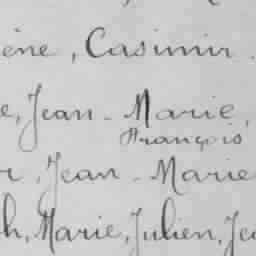 ène, Casimir.
e, Jean-Marie,
François
r, Jean-Marie
h, Marie, Julien, Je